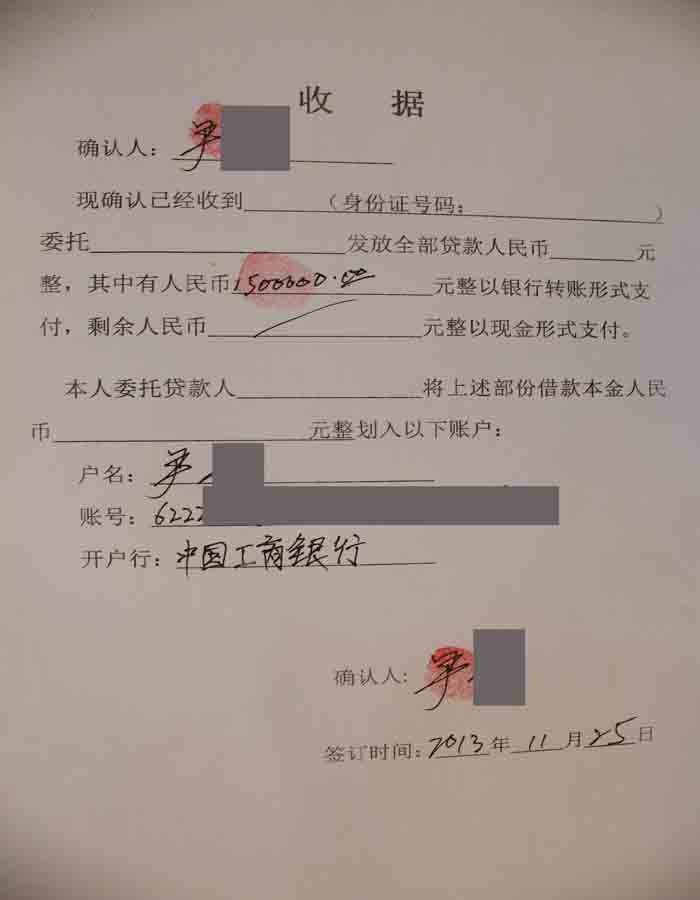 收 据
确认人：
现确认已经收到______（身份证号码：______）
委托______发放全部贷款人民币______元
整，其中有人民币1500000.00元整以银行转账形式支
付，剩余人民币______元整以现金形式支付。
本人委托贷款人______将上述部份借款本金人民
币______元整划入以下账户：
户名：
账号：6222
开户行：中国工商银行
确认人：
签订时间：2013年11月25日